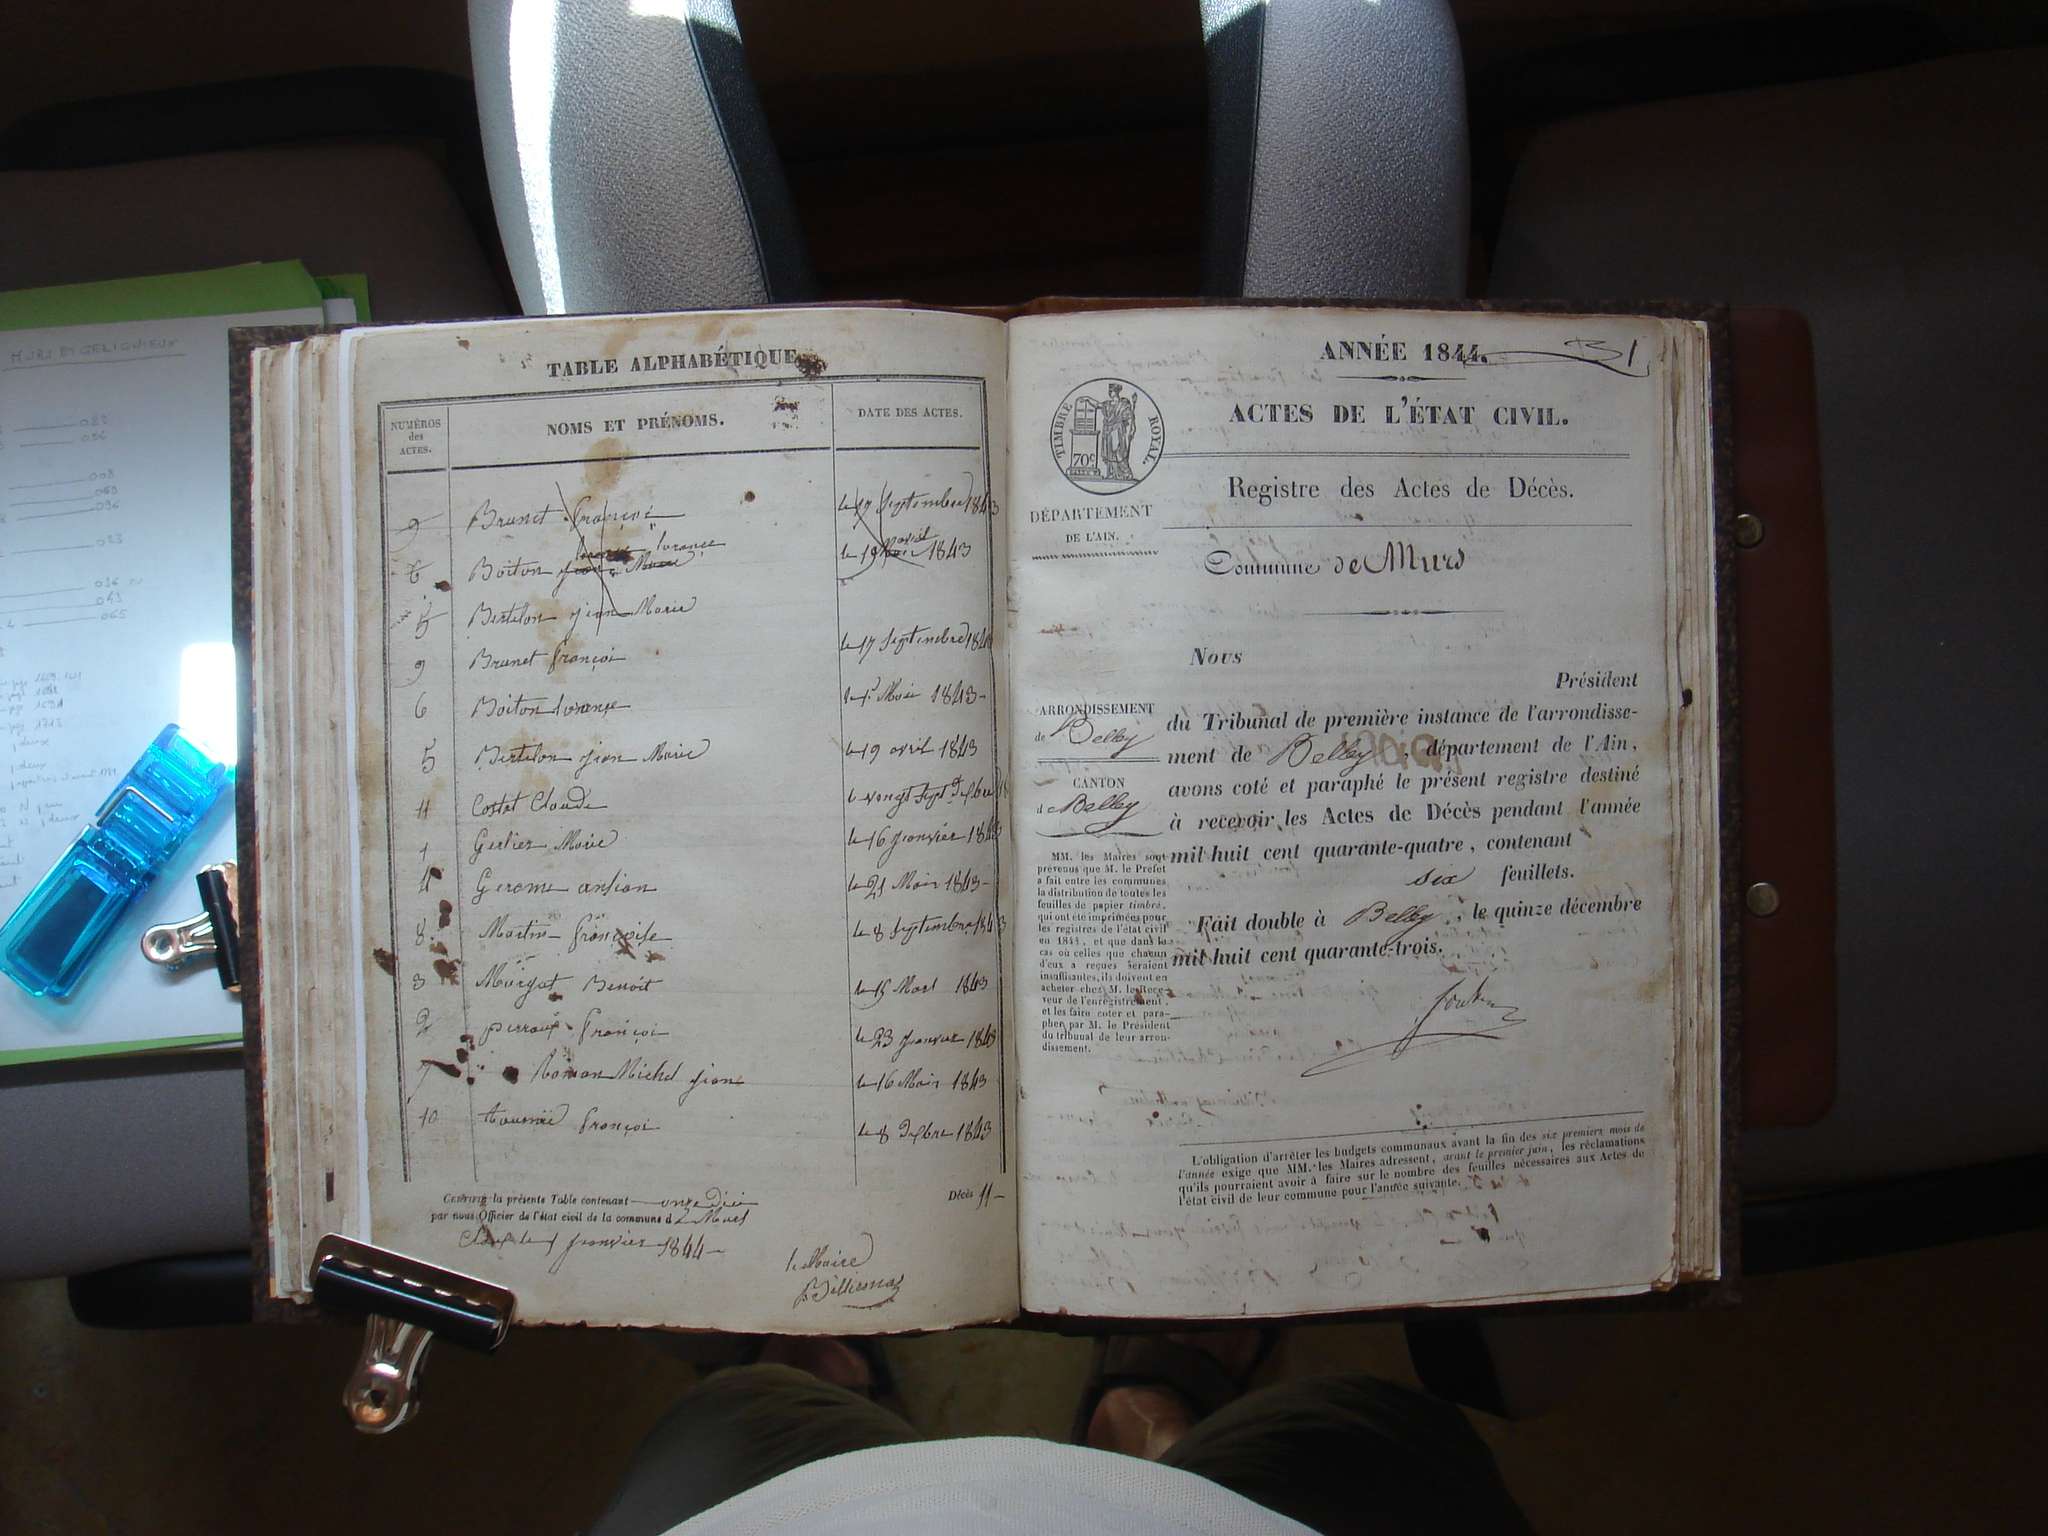 MURS ET GELIGNIEUX
TABLE ALPHABÉTIQUE
NUMÉROS des ACTES.
NOMS ET PRÉNOMS.
DATE DES ACTES.
9 Brunet françoi le 17 Septembre 1843
6 Boiton jean Marie lorance le 19 Mai avril 1843
5 Bertelon jean Marie
9 Brunet françoi le 17 Septembre 1843
6 Boiton lorance le 1 Mai 1843
5 Bertelon jean Marie le 19 avril 1843
11 Costat Claude
1 Gerlier Marie le 16 janvier 1843
4 Gerome le 21 1843
8 Martin françoise le 8 Septembre 1843
3 Murgat Benoit le 15 Mars 1843
2 perraux françoi le 23 janvier 1843
7 Roman Michel jean le 16 Mai 1843
10 françoi le 8 1843
CERTIFIÉ la présente Table contenant onze Décès 11
par nous Officier de l'état civil de la commune d
Clos le 1 janvier 1844
le Maire
ANNÉE 1844.
1
TIMBRE ROYAL.
70c
ACTES DE L'ÉTAT CIVIL.
Registre des Actes de Décès.
DÉPARTEMENT
DE L'AIN.
Commune de Murs
Nous
Président
ARRONDISSEMENT
de Belley
CANTON
de Belley
du Tribunal de première instance de l'arrondisse-
ment de Belley, département de l'Ain,
avons coté et paraphé le présent registre destiné
à recevoir les Actes de Décès pendant l'année
mil huit cent quarante-quatre, contenant
six feuillets.
Fait double à Belley, le quinze décembre
mil huit cent quarante-trois.
MM. les Maires sont
prévenus que M. le Préfet
a fait entre les communes
la distribution de toutes les
feuilles de papier timbré,
qui ont été imprimées pour
les registres de l'état civil
en 1844, et que dans le
cas où celles que chacun
d'eux a reçues seraient
insuffisantes, ils doivent en
acheter chez M. le Rece-
veur de l'enregistrement,
et les faire coter et para-
pher par M. le Président
du tribunal de leur arron-
dissement.
L'obligation d'arrêter les budgets communaux avant la fin des six premiers mois de
l'année exige que MM. les Maires adressent, avant le premier juin, les réclamations
qu'ils pourraient avoir à faire sur le nombre des feuilles nécessaires aux Actes de
l'état civil de leur commune pour l'année suivante.